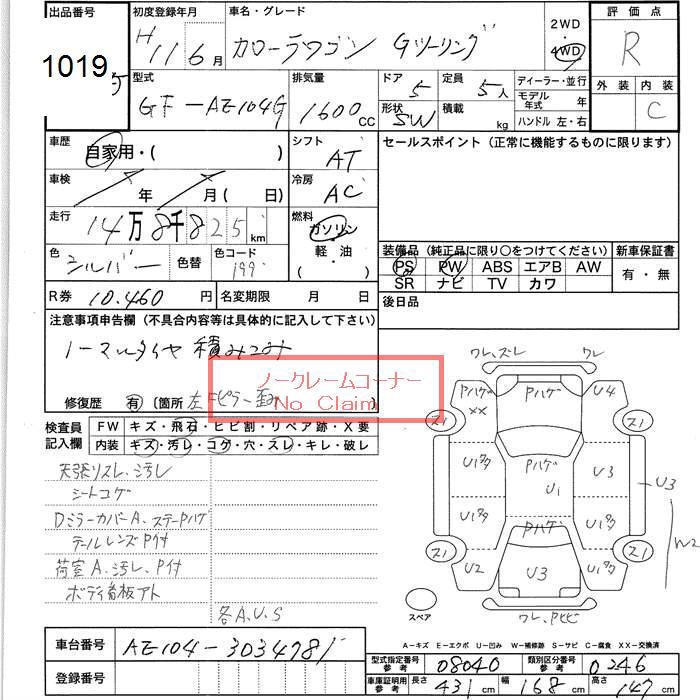 出品番号 初度登録年月 車名・グレード 2WD 4WD 評価点
10195 H 11 6月 カローラワゴン Gツーリング R
型式 排気量 ドア 定員 ディーラー・並行 外装 内装
GF-AE104G 1600 CC 5 5人 モデル年式 年 C
形状 積載 ハンドル 左・右
SW kg
車歴 シフト セールスポイント (正常に機能するものに限ります)
自家用・( ) AT
車検 冷房
年 月( 日) AC
走行 燃料
14万8千825 km ガソリン
軽・油
色 色替 色コード ( ) 装備品 (純正品に限り○をつけてください) 新車保証書
シルバー 199 PS PW ABS エアB AW 有・無
SR ナビ TV カワ
R券 10.460 円 名変期限 月 日 後日品
注意事項申告欄 (不具合内容等は具体的に記入して下さい)
ノーマルタイヤ積みこみ
ノークレームコーナー
No Claim
修復歴 有 〔箇所 左Fピラー歪み )
検査員 FW キズ・飛石・ヒビ割・リペア跡・X要
記入欄 内装 キズ・汚レ・コゲ・穴・スレ・キレ・破レ
天張リスレ、汚レ
シートコゲ
DミラーカバーA、ステーPハゲ
テールレンズP付
荷室A、汚レ、P付
ボディ看板アト
各A.U.S
ワレ、ズレ ワレ
Pハゲ XX Pハゲ U4
ス1 ス1
U1タタ Pハゲ U3
U1 U3
U1タタ Pハゲ U1タタ
W2
ス1 ス1
U2 U3 U1タタ
スペア ワレ、Pヒビ
A-キズ E-エクボ U-凹み W-補修跡 S-サビ C-腐食 XX-交換済
車台番号 AE104-3034781
型式指定番号 参考 08040 類別区分番号 参考 0246
登録番号
車庫証明用 参考 長さ 431 cm 幅 168 cm 高さ 147 cm